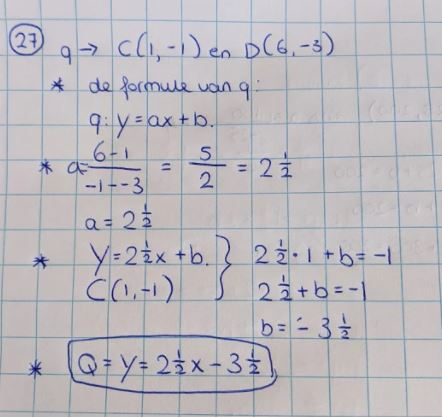 27 q → C(1,-1) en D(6,-3)
* de formule van q:
q: y = ax + b.
* a = 6-1 / -1--3 = 5/2 = 2 1/2
a = 2 1/2
* y = 2 1/2 x + b. } 2 1/2 · 1 + b = -1
C(1,-1) 2 1/2 + b = -1
b = -3 1/2
* Q = y = 2 1/2 x - 3 1/2